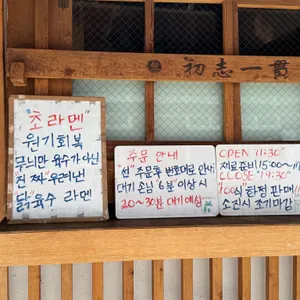 初志一貫
"초라멘"
원기회복
무늬만 육수가 아닌
진짜 "우려낸"
닭육수 라멘
주문 안내
"선" 주문후 번호대로 안내
대기 손님 "6분" 이상시
20~30분 대기예상
OPEN "11:30"
재료준비 15:00~
CLOSE "19:30"
"100식" 한정 판매
소진시 조기마감